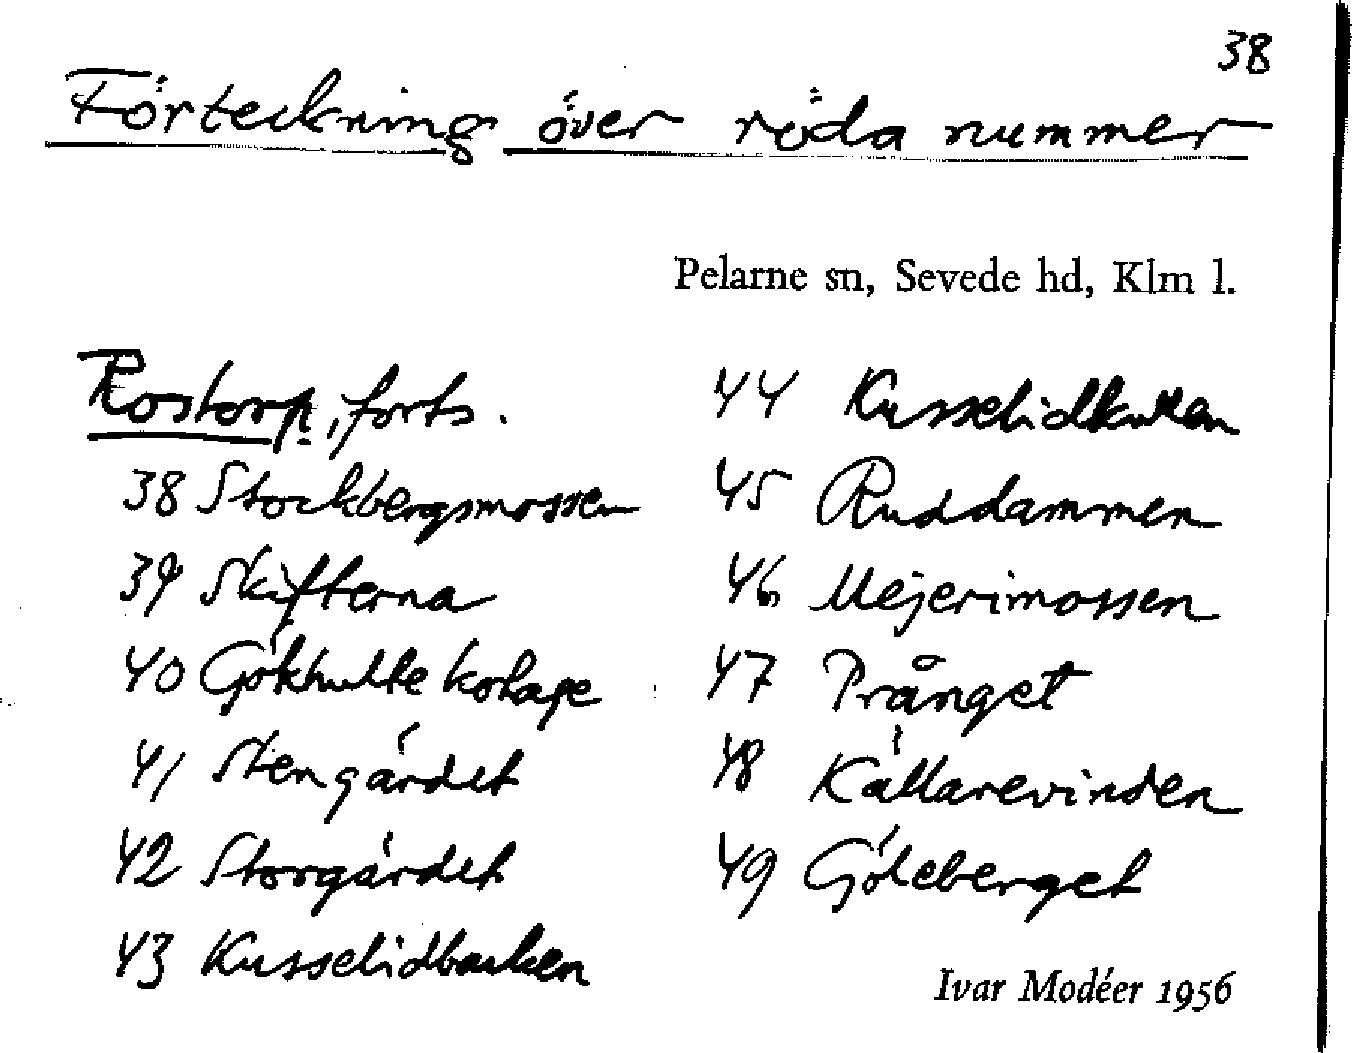 38
Förteckning över röda nummer
Pelarne sn, Sevede hd, Klm l.
Rostorp, forts.
38 Stockbergsmossen
39 Skifterna
40 Gökhulte kohage
41 Stengärdet
42 Storgärdet
43 Kusselidbacken
44 Kusselidkullen
45 Ruddammen
46 Mejerimossen
47 Prånget
48 Källarevinden
49 Göleberget
Ivar Modéer 1956